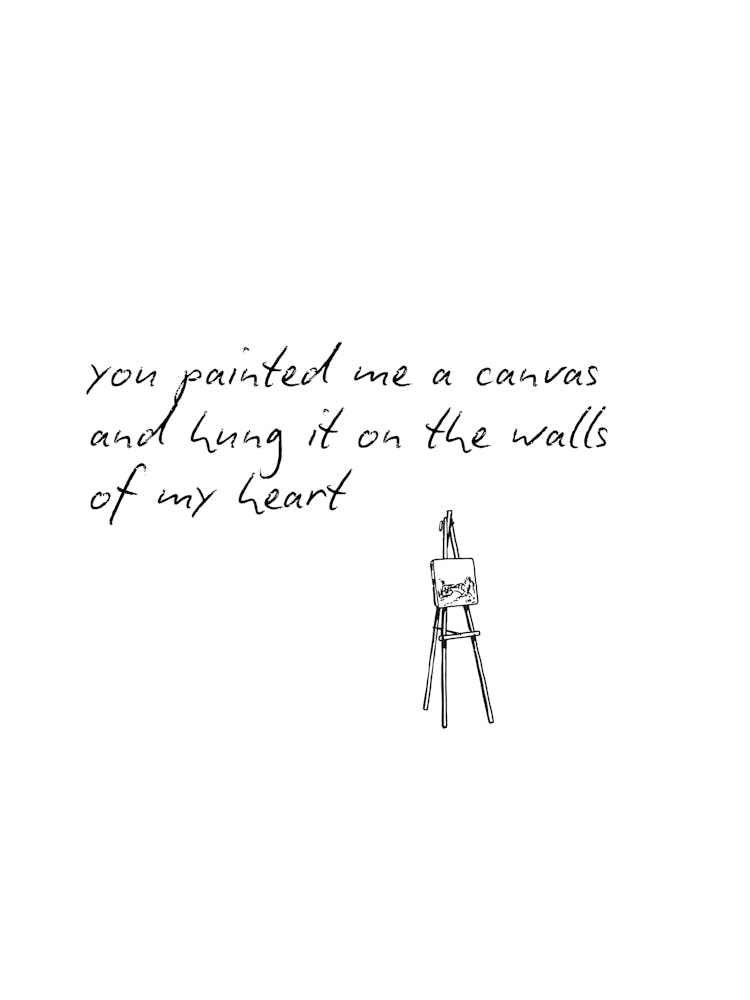 you painted me a canvas
and hung it on the walls
of my heart